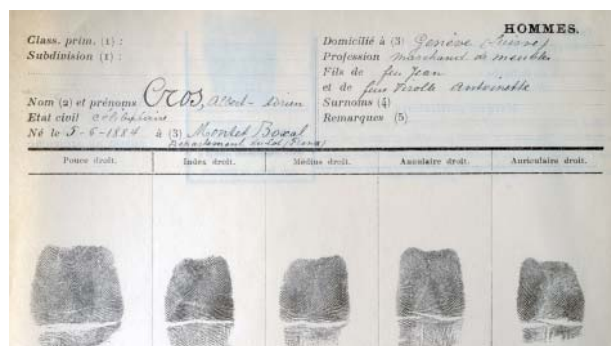 HOMMES.
Class. prim. (1) :
Subdivision (1) :
Nom (2) et prénoms Cros, Albert - Adrien
Etat civil célibataire
Né le 5-6-1884 à (3) Montet Boxal
Departement du Lot (France)
Domicilié à (3) Genève (Suisse)
Profession marchand de meubles
Fils de feu Jean
et de feue Antoinette
Surnoms (4)
Remarques (5)
Pouce droit. Index droit. Médius droit. Annulaire droit. Auriculaire droit.